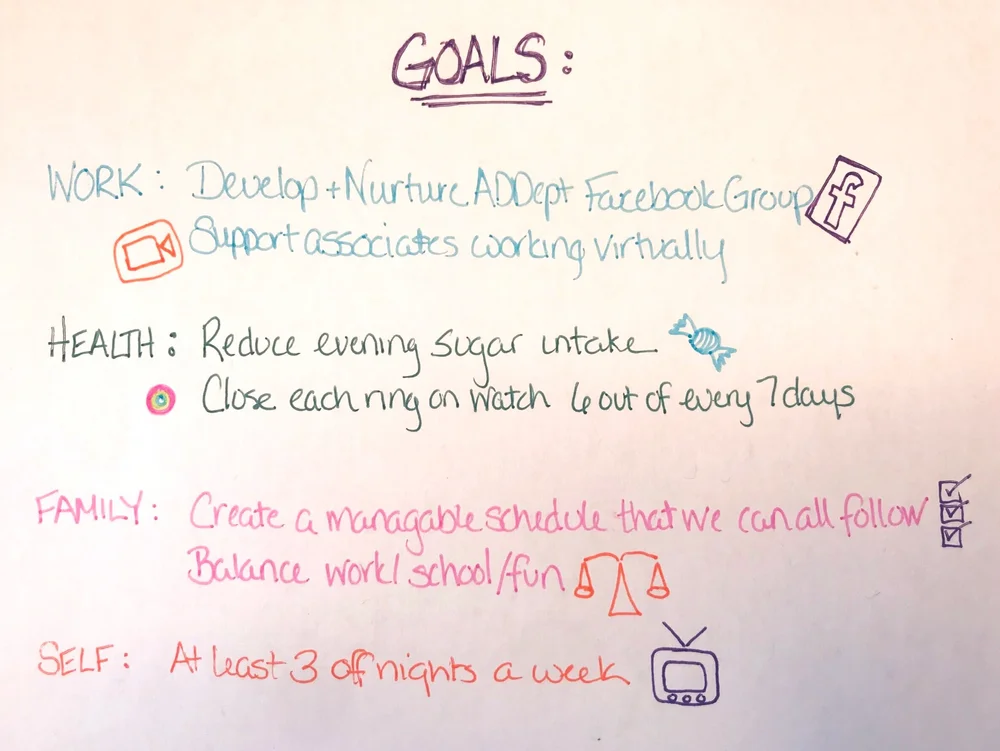 GOALS:
WORK: Develop + Nurture ADDept Facebook Group
f
Support associates working virtually
HEALTH: Reduce evening sugar intake
Close each ring on watch 6 out of every 7 days
FAMILY: Create a managable schedule that we can all follow
Balance work/school/fun
SELF: At least 3 off nights a week